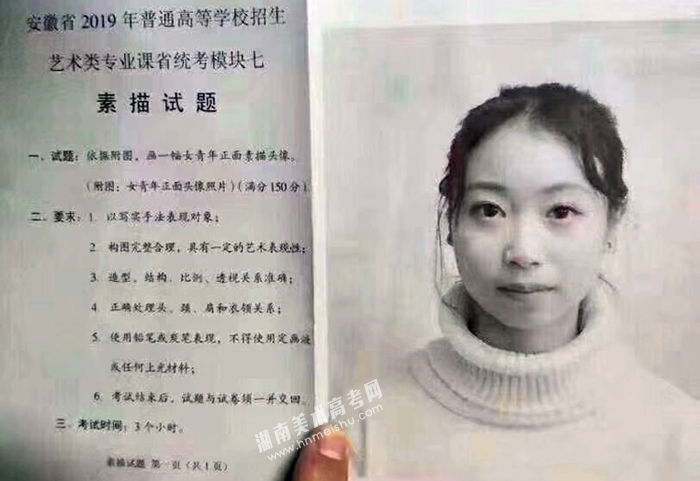 安徽省 2019 年普通高等学校招生
艺术类专业课省统考模块七
素描试题
一、试题：依据附图，画一幅女青年正面素描头像。
（附图：女青年正面头像照片）（满分 150 分）
二、要求：1. 以写实手法表现对象；
2. 构图完整合理，具有一定的艺术表现性；
3. 造型、结构、比例、透视关系准确；
4. 正确处理头、颈、肩和衣领关系；
5. 使用铅笔或炭笔表现，不得使用定画液
或任何上光材料；
6. 考试结束后，试题与试卷须一并交回。
三、考试时间：3 个小时。
素描试题 第一页（共 1 页）
湖南美术高考网
www.hnmeishu.com